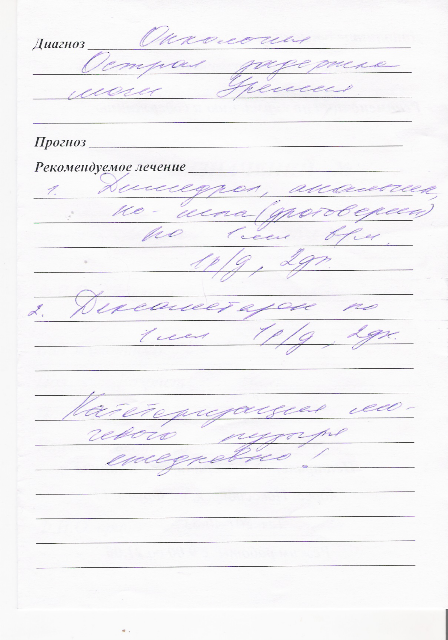 Диагноз Онкология
Острая задержка
мочи Уремия
Прогноз
Рекомендуемое лечение
1. Димедрол, анальгин,
но-шпа (дротоверин)
по 1мл в/м
1р/д, 2дн
2. Дексаметазон по
1мл 1р/д, 2дн.
Катетеризация мо-
чевого пузыря
ежедневно!